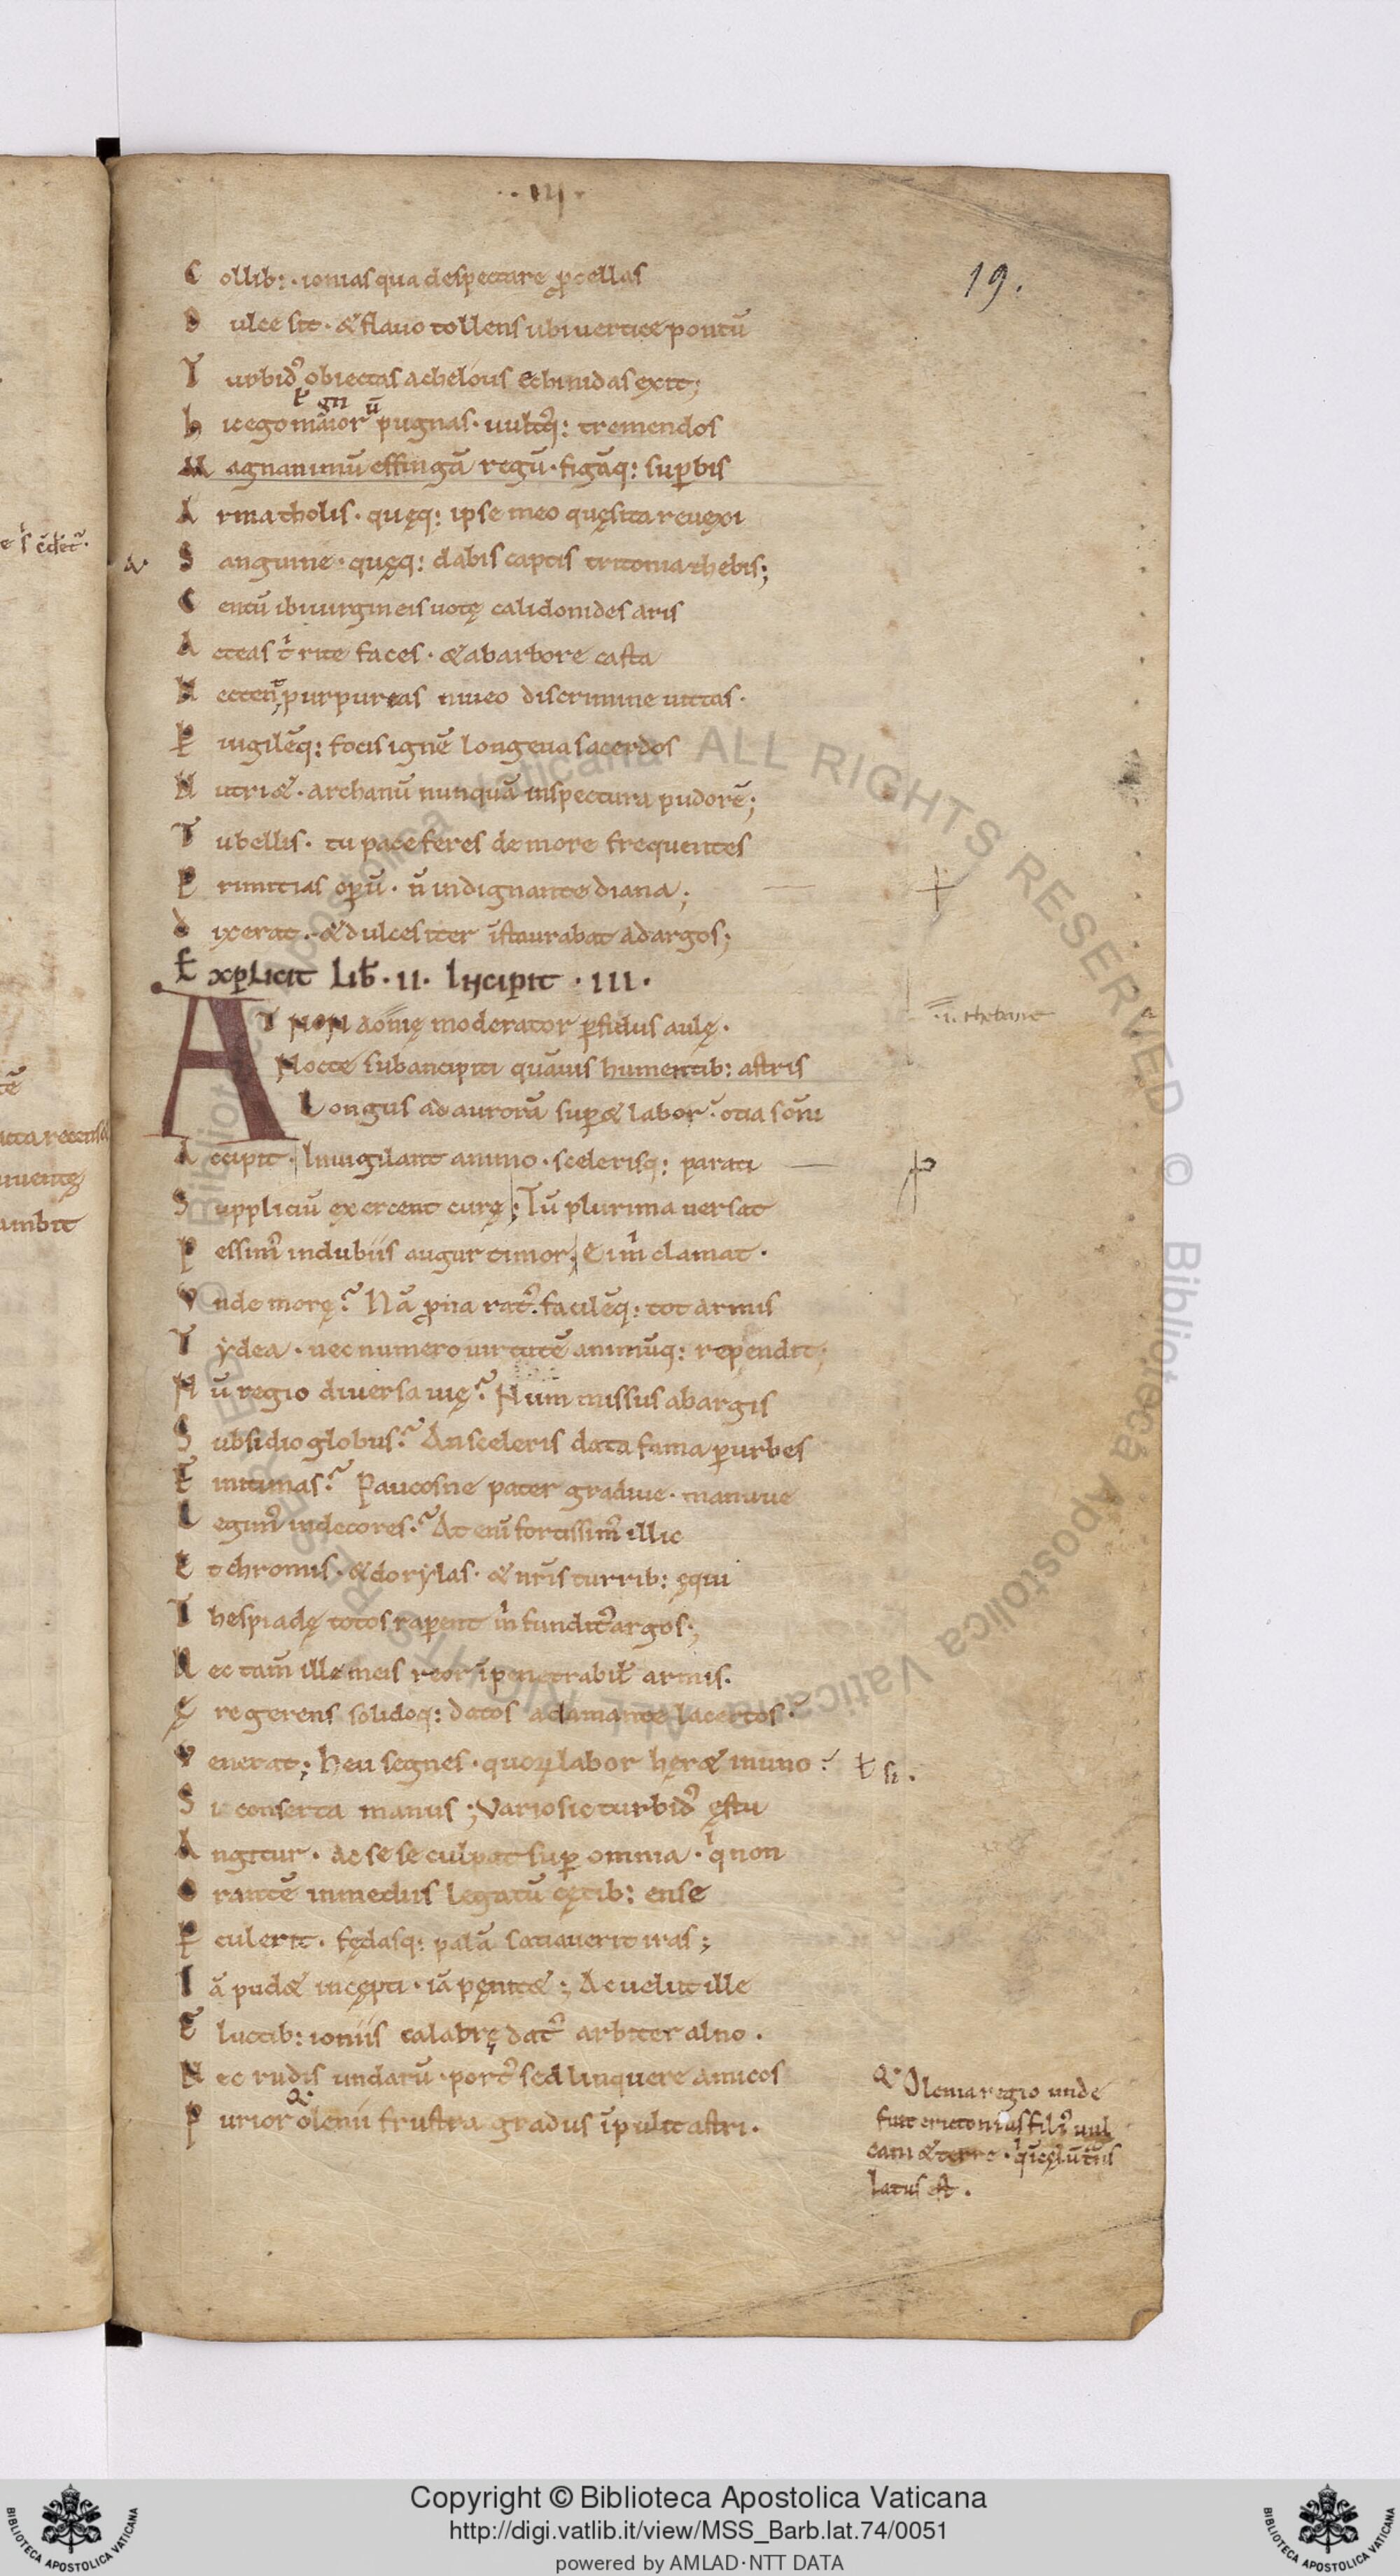 ·· III ·
19.
C ollib: · ionias qua despectare ꝓcellas
D ulce sit · & flauo tollens ubi uertice pontū
T urbidꝰ obiectas achelous echinidas exit;
ł gn ū
h ic ego maiorū pugnas · uultꝰq: tremendos
M agnanimū effingā regū · figāq: suꝑbis
A rma tholis · quęq: ipse meo quęsita reuexi
a· S anguine · quęq: dabis captis tritonia thebis;
C entū ibi uirgineis uotę calidonides aris
A cteas t̄ rite faces · & ab arbore casta
N ectent purpureas niueo discrimine uittas ·
P uigilēq: focis ignē longeua sacerdos
N utri& · archanū nunquā inspectura pudorē;
T u bellis · tu pace feres de more frequentes
P rimitias oꝑū · n̄ indignante diana;
d ixerat · & dulces iter īstaurabat ad argos;
Exꝑlicit Lib̄ · II · Incipit · III ·
AT NON aonię moderator ꝑfidus aulę ·
·i· thebane
Nocte sub ancipiti quāuis humentib: astris
Longus ad aurorā suꝑ& labor · otia som̄
A ccipit · Inuigilant animo · scelerisq: parati
S uppliciū exercent curę; Tū plurima uersat
P essimꝰ in dubiis augur timor; Ei m̄ clamat ·
V nde morę? Nā ꝓna ratꝰ · facilēq: tot armis
T ydea · nec numero uirtutē animūq: rependit;
N ū regio diuersa uię? Num missus ab argis
S ubsidio globus? An sceleris data fama ꝑ urbes
F initimas? Paucosne pater gradiue · manuue
L egimꝰ indecores? At enī fortissimꝰ illic
E t chromis · & dorylas · & nr̄is turrib: ęqui
T hespiadę totos raꝑent m̄ funditꝰ argos;
N ec tam̄ ille meis reor īpenetrabil̄ armis ·
Ę re gerens solidoq: datos adamante lacertos ·
V enerat; heu segnes · quoꝝ labor hęr& in uno? ł si ·
S i conserta manus; Vario sic turbidꝰ ęstu
A ngitur · ac sese culpat suꝑ omnia · q non
O rantē in mediis legatū cętib: ense
P culerit · fędasq: palā satiauerit iras;
I ā pud& incępti · iā pęnit&; Ac uelut ille
F luctib: ioniis calabrę datꝰ arbiter alno ·
N ec rudis undarū · portꝰ sed linquere amicos
P urior olenii frustra gradus īpulit astri ·
Olenia regio unde
fuit erictonius filiꝰ uul
cani & terre · q ī cęlū t̄ns
latus est ·
Copyright © Biblioteca Apostolica Vaticana
http://digi.vatlib.it/view/MSS_Barb.lat.74/0051
powered by AMLAD·NTT DATA